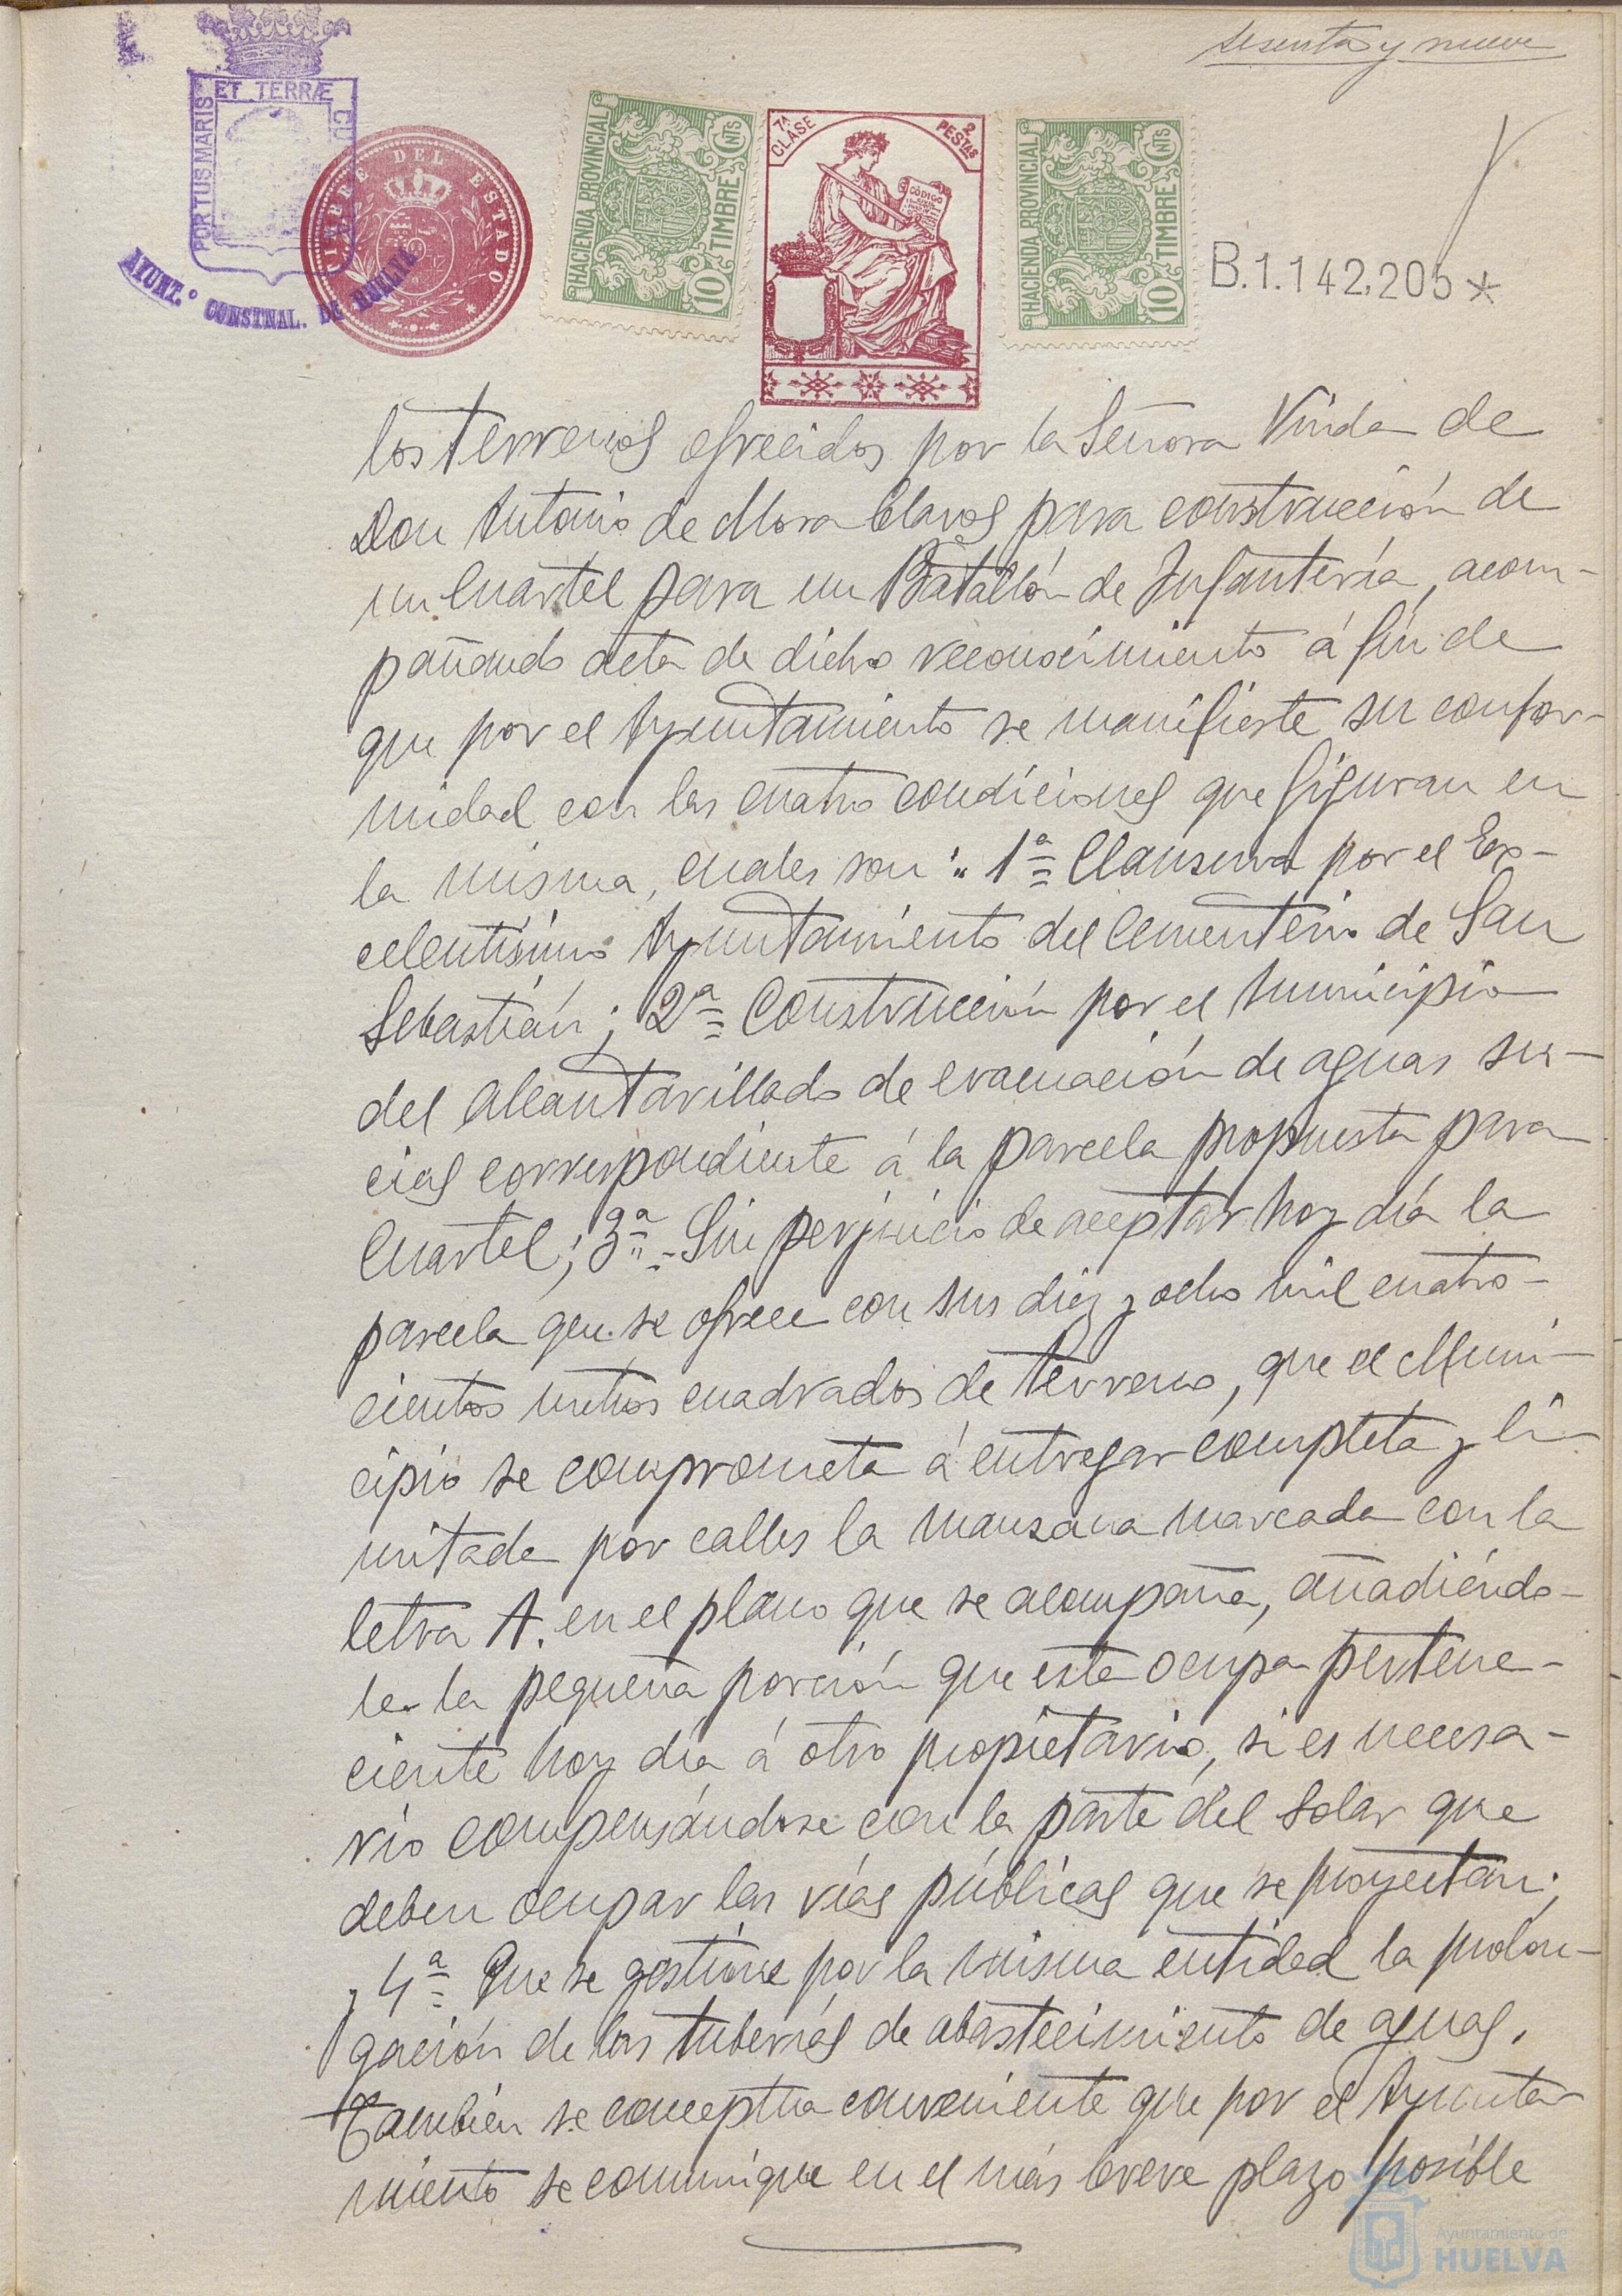 sesenta y nueve
PORTUS MARIS ET TERRÆ CU
AYUNT.º CONSTNAL. DE HUELVA
TIMBRE DEL ESTADO
HACIENDA PROVINCIAL
10 CNTS
TIMBRE
7ª CLASE
2 PESTAS
CÓDIGO
HACIENDA PROVINCIAL
10 CNTS
TIMBRE
B.1.142,205*
los terrenos ofrecidos por la Señora Viuda de
Don Antonio de Mora Claros para construcción de
un Cuartel para un Batallón de Infantería, acom-
pañando acta de dicho reconocimiento á fin de
que por el Ayuntamiento se manifieste su confor-
midad con las cuatro condiciones que figuran en
la misma, cuales son: "1ª Clausura por el Ex-
celentísimo Ayuntamiento del Cementerio de San
Sebastián; 2ª Construcción por el Municipio
del alcantarillado de evacuación de aguas su-
cias correspondiente á la parcela propuesta para
Cuartel; 3ª - Sin perjuicio de aceptar hoy día la
parcela que se ofrece con sus diez y ocho mil cuatro-
cientos metros cuadrados de terreno, que el Muni-
cipio se comprometa á entregar completa y li-
mitada por calles la manzana marcada con la
letra A. en el plano que se acompaña, añadiéndo-
le la pequeña porción que esta ocupa pertene-
ciente hoy día á otro propietario, si es necesa-
rio compensándose con la parte del solar que
deben ocupar las vías públicas que se proyectan;
y 4ª Que se gestione por la misma entidad la prolon-
gación de las tuberías de abastecimiento de aguas.
También se conceptúa conveniente que por el Ayunta-
miento se comunique en el más breve plazo posible
Ayuntamiento de
HUELVA